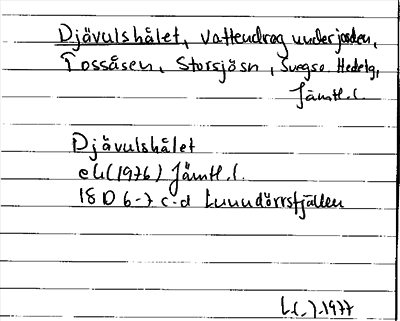 Djävulshålet, vattendrag under jorden,
Tossåsen, Storsjösn, Svegsn. Hedebg,
Jämtl.l.
Djävulshålet
ek(1976) Jämtl.l.
18 D 6-7 c-d Lunndörrsfjällen
L.L.J.1977